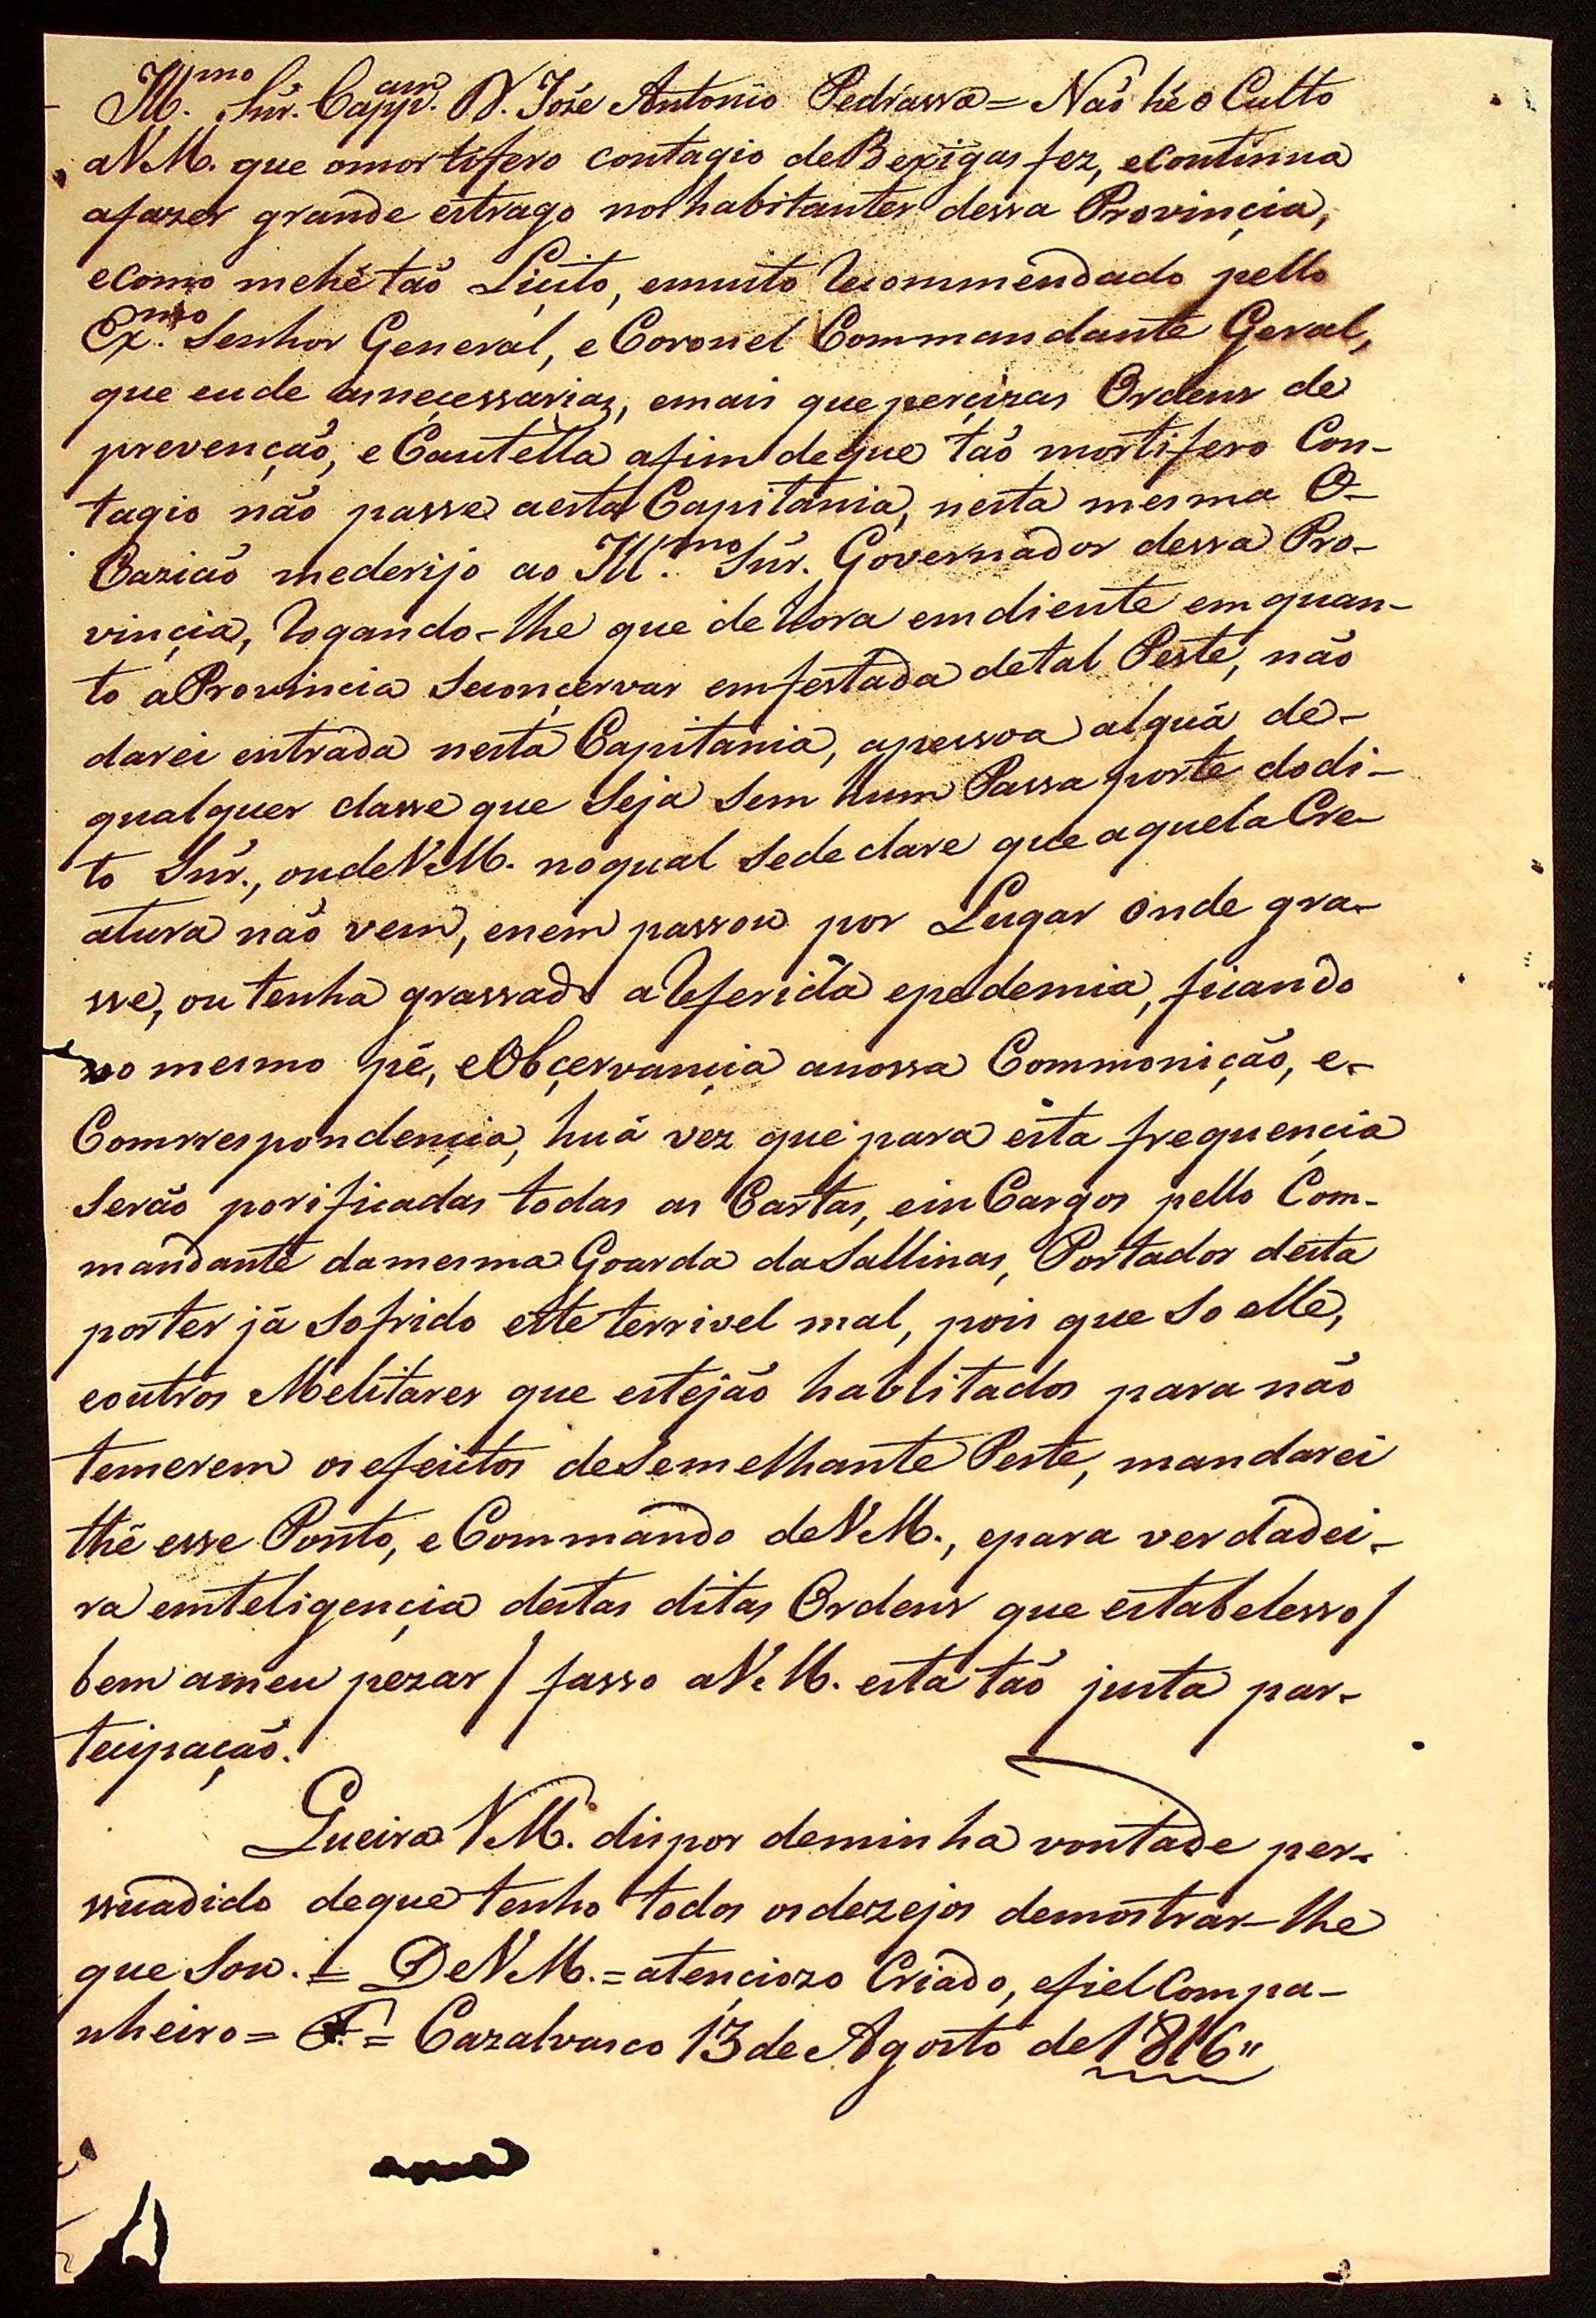 Ill.mo Snr. Capp.am D. Joze Antonio Pedrassa = Não hé o Culto
a V.M. que o mortifero contagio de Bexigas fez, e continua
a fazer grande estrago nos habitantes dessa Provinçia,
e como me hé tão Liçito, e muito recommendado pello
Ex.mo Senhor General, e Coronel Commandante Geral,
que eu de as neçessarias, e mais que perçizas Ordens de
prevenção, e Cautella afim de que tão mortifero Con-
tagio não passe a esta Capitania, nesta mesma O-
Cazião me derijo ao Ill.mo Snr. Governador dessa Pro-
vinçia, rogando-lhe que de hora em diente em quan-
to a Provincia se conçervar emfestada de tal Peste, não
darei entrada nesta Capitania, a pessoa alguã de-
qualquer classe que seja sem hum Passaporte do di-
to Snr., ou de V.M. no qual se declare que aquela Cre-
atura não vem, e nem passou por Lugar onde gra-
sse, ou tenha grassado a referida epedemia, ficando
no mesmo pé, e Obçervançia a nossa Commonição, e-
Comrrespondençia, huã vez que para esta frequençia
serão porificadas todas as Cartas, e in Cargos pello Com-
mandante da mesma Goarda da Sallinas, Portador desta
por ter já sofrido este terrivel mal, pois que so elle,
e outros Melitares que estejão hablitados para não
temerem os efeitos de semelhante Peste, mandarei
thé esse Ponto, e Commando de V.M., e para verdadei-
ra emteligençia destas ditas Ordens que estabelesso /
bem a meu pezar / fasso a V.M. esta tão justa par-
teçipação.
Queira V.M. dispor de minha vontade per-
suadido de que tenho todos os dezejos de mostrar-lhe
que sou. = De V.M. = atençiozo Criado, e fiel Compa-
nheiro = F. = Cazalvasco 13 de Agosto de 1816"